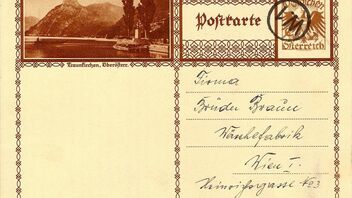 Postkarte
Österreich
Traunkirchen, Oberösterr.
Firma
Brüder Braun
Wäschefabrik
Wien I.
Heinrichsgasse No 3